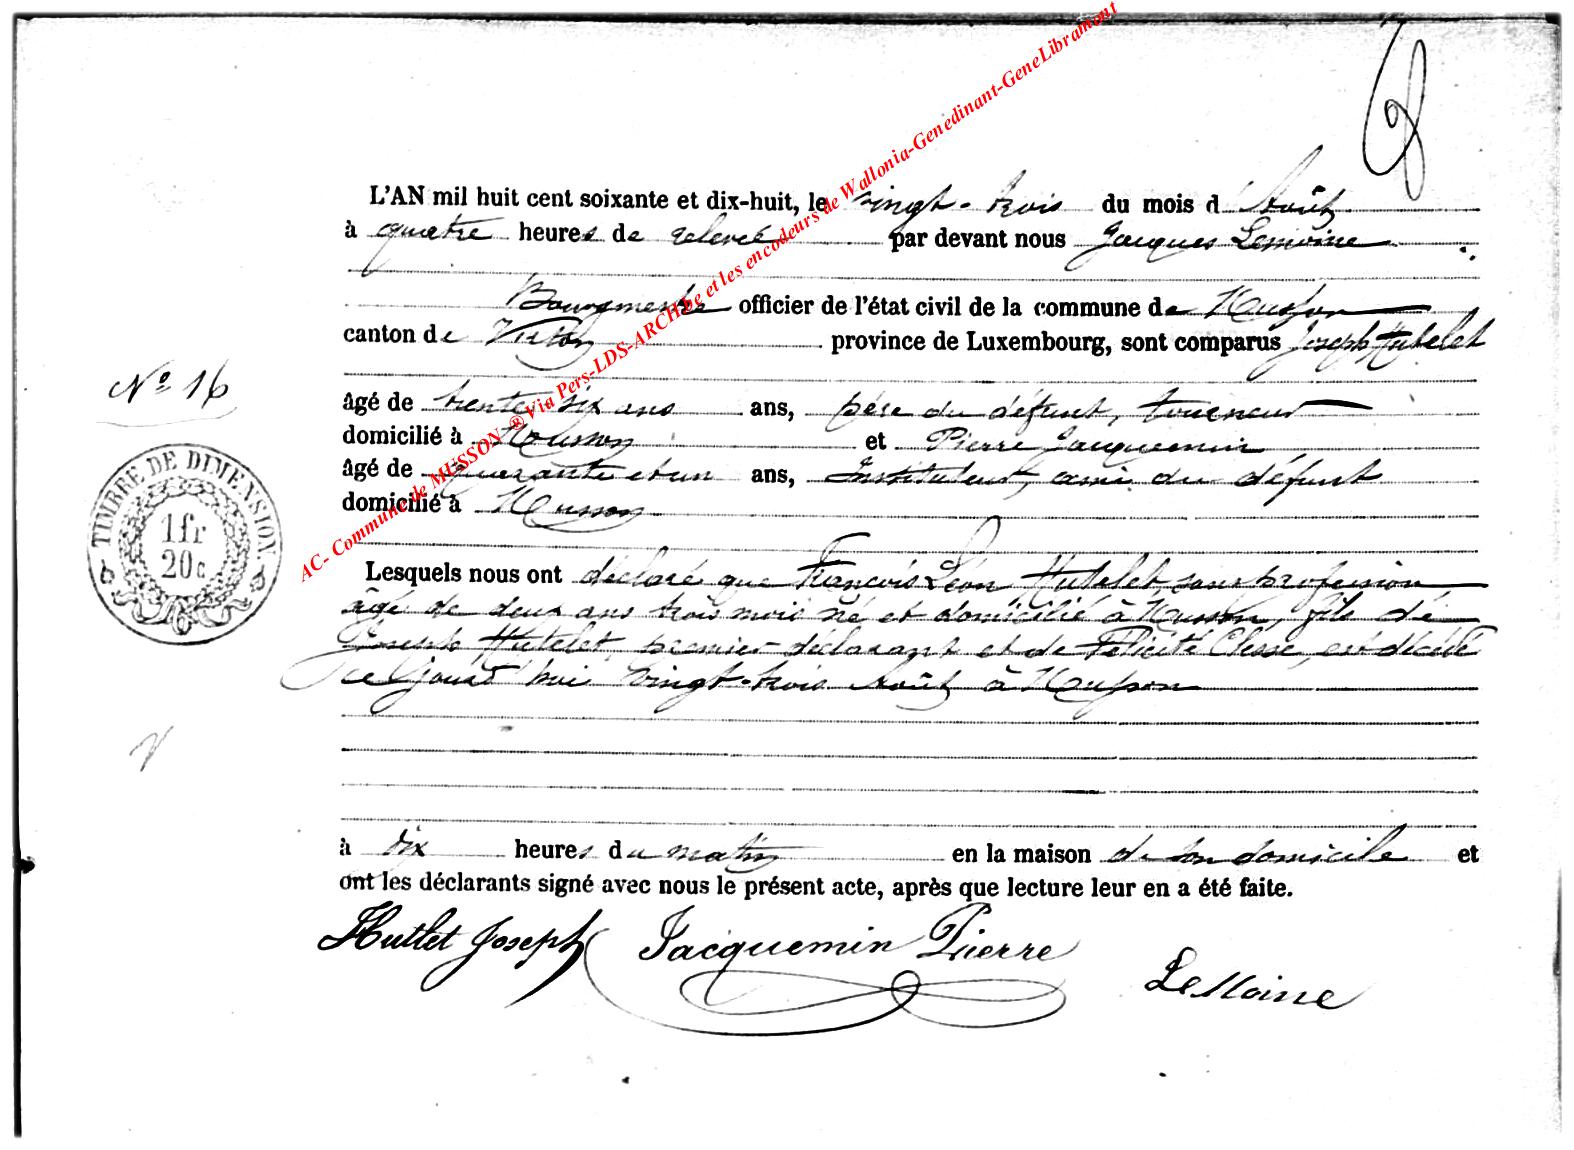 L'AN mil huit cent soixante et dix-huit, le vingt-trois du mois d'Août
à quatre heures de relevée par devant nous Jacques Lemoine
Bourgmestre officier de l'état civil de la commune de Musson
canton de Virton province de Luxembourg, sont comparus Joseph Hutelet
N° 16
âgé de trente six ans ans, père du défunt, tourneur
domicilié à Musson et Pierre Jacquemin
âgé de quarante et un ans, Instituteur, ami du défunt
domicilié à Musson
TIMBRE DE DIMENSION.
1 fr
20 c
Lesquels nous ont déclaré que François Léon Hutelet, sans profession
âgé de deux ans trois mois né et domicilié à Musson, fils de
Joseph Hutelet, premier déclarant et de Félicité Classe, est décédé
ce jourd'hui vingt-trois Août à Musson
à dix heures du matin en la maison de son domicile et
ont les déclarants signé avec nous le présent acte, après que lecture leur en a été faite.
Hutlet Joseph Jacquemin Pierre
LeMoine
AC- Commune de MUSSON ® Via Pers-LDS-ARCH.be et les encodeurs de Wallonia-Genedinant-GeneLibramont